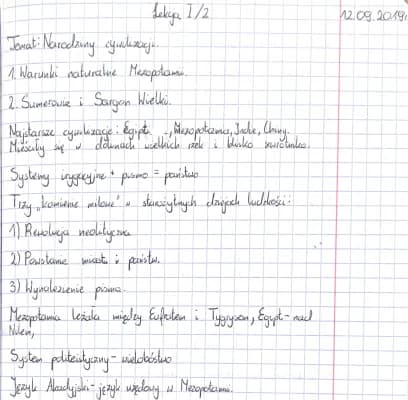 Lekcja I/2 12.09.2019r.
Temat: Narodziny cywilizacji.
1. Warunki naturalne Mezopotamii.
2. Sumerowie i Sargon Wielki.
Najstarsze cywilizacje: Egipt, Mezopotamia, Indie, Chiny.
Mieściły się w dolinach wielkich rzek i blisko zwrotnika.
Systemy irygacyjne + pismo = państwo
Trzy "kamienie milowe" w starożytnych dziejach ludzkości:
1) Rewolucja neolityczna
2) Powstanie miast i państw.
3) Wynalezienie pisma.
Mezopotamia leżała między Eufratem i Tygrysem, Egipt - nad
Nilem,
System politeistyczny - wielobóstwo
Język Akadyjski - język urzędowy w Mezopotamii.